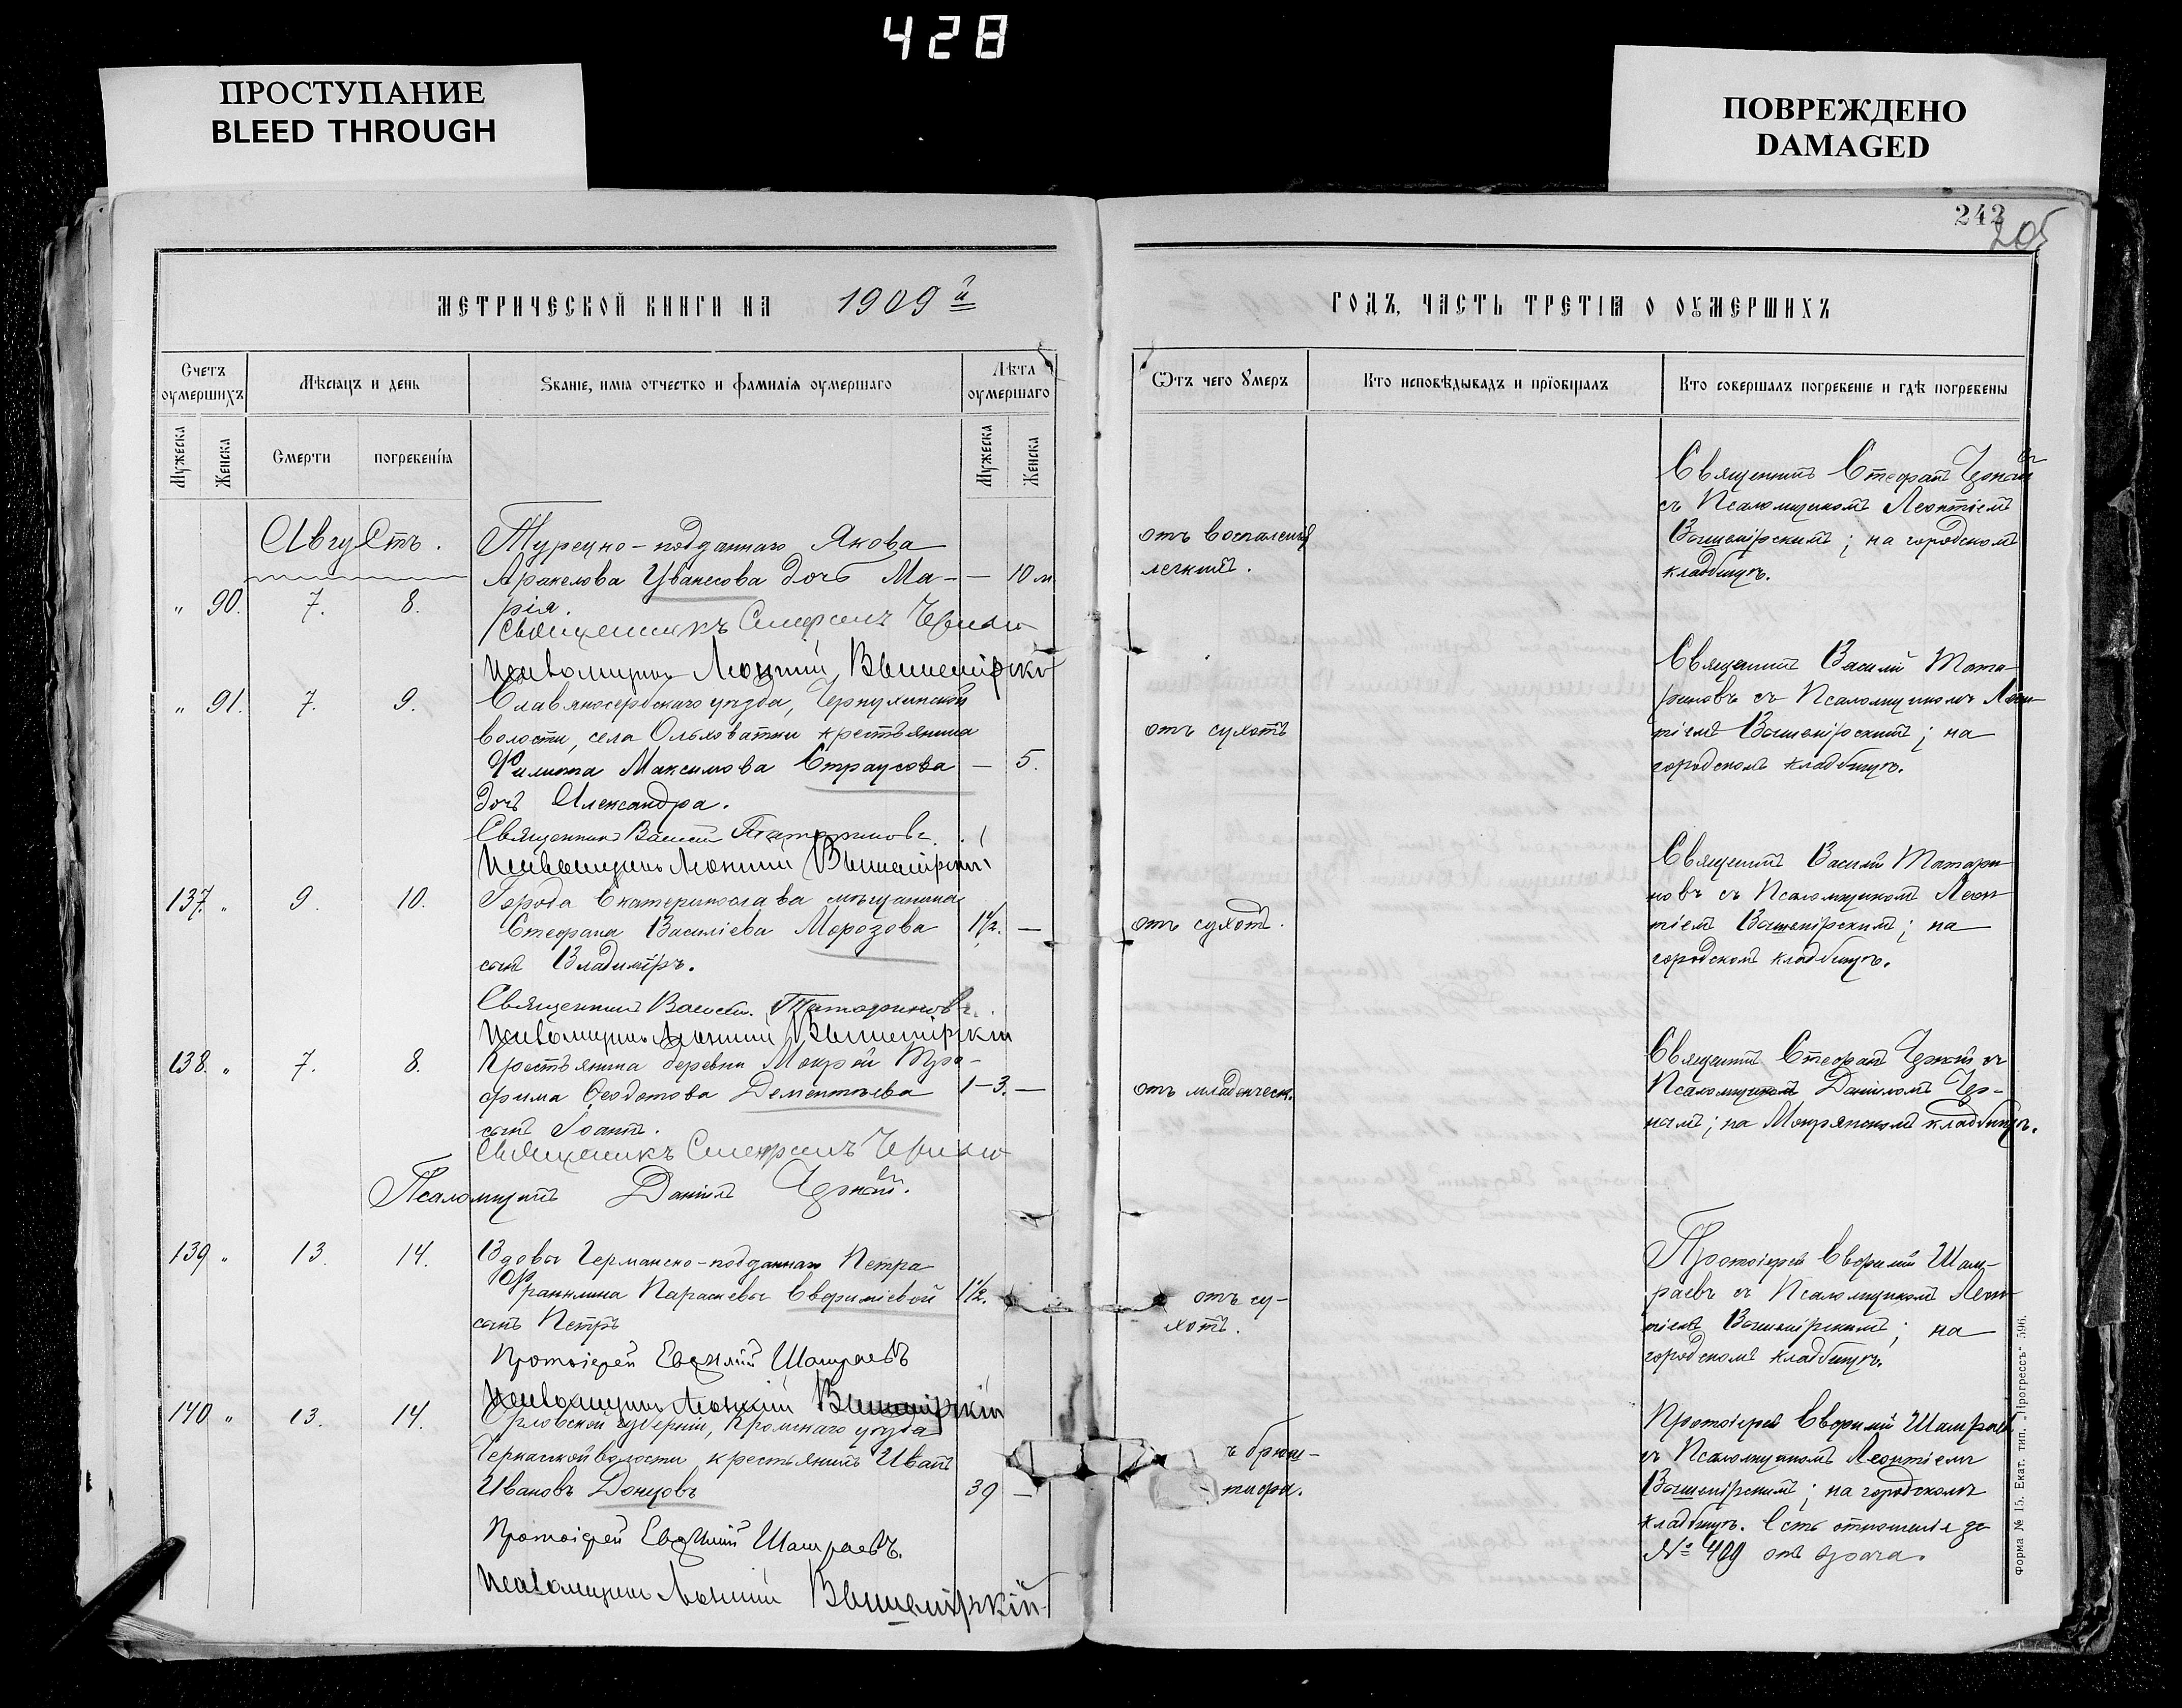 428
ПРОСТУПАНИЕ
BLEED THROUGH
ПОВРЕЖДЕНО
DAMAGED
242
205
МЕТРИЧЕСКОЙ КНИГИ НА 1909й
ГОДЪ, ЧАСТЬ ТРЕТІЯ О ОУМЕРШИХЪ
Счетъ оумершихъ
Мѣсяцъ и день
Званіе, имя отчество и фамилія оумершаго
Лѣта оумершаго
Ѿтъ чего Умеръ
Кто исповѣдывалъ и пріобщалъ
Кто совершалъ погребеніе и гдѣ погребены
Мужеска
Женска
Смерти
погребенія
Мужеска
Женска
Августъ.
Турецко-подданнаго Якова
Аракелова Иванесова дочь Ма- — 10 м.
„ 90. 7. 8. рія.
Священникъ Стефанъ Черный
Псаломщикъ Леонтій Вышемірскій
отъ воспаленія
легкихъ.
Священникъ Стефанъ Черный
съ Псаломщикомъ Леонтіемъ
Вышемірскимъ; на городскомъ
кладбищѣ.
„ 91. 7. 9. Славяносербскаго уѣзда, Чернухинской
волости, села Ольховатки крестьянина
Филиппа Максимова Страусова — 5.
дочь Александра.
Священникъ Василій Татариновъ.
Псаломщикъ Леонтій Вышемірскій
отъ сухотъ
Священникъ Василій Тата-
риновъ съ Псаломщикомъ Леон-
тіемъ Вышемірскимъ; на
городскомъ кладбищѣ.
137. „ 9. 10. Города Екатеринослава мѣщанина
Стефана Василіева Морозова 1½. —
сынъ Владиміръ.
Священникъ Василій Татариновъ.
Псаломщикъ Леонтій Вышемірскій
отъ сухотъ.
Священникъ Василій Татари-
новъ съ Псаломщикомъ Леон-
тіемъ Вышемірскимъ; на
городскомъ кладбищѣ.
138. „ 7. 8. Крестьянина деревни Мокрой Тро-
фима Ѳеодотова Дементьева 1-3. —
сынъ Іоаннъ.
Священникъ Стефанъ Черный
Псаломщикъ Даніилъ Черный.
отъ младенческ.
Священникъ Стефанъ Черный съ
Псаломщикомъ Даніиломъ Чер-
нымъ; на Мокрянскомъ кладбищѣ.
139 „ 13. 14. Вдовы Германско-подданнаго Петра
Франклина Параскевы Евфиміевой 1½.
сынъ Петръ
Протоіерей Евфимій Шамраевъ
Псаломщикъ Леонтій Вышемірскій
отъ су-
хотъ.
Протоіерей Евфимій Шам-
раевъ съ Псаломщикомъ Леон-
тіемъ Вышемірскимъ; на
городскомъ кладбищѣ.
140 „ 13. 14. Орловской губерніи, Кромскаго уѣзда
Черкасской волости крестьянинъ Иванъ
Ивановъ Донцовъ 39 —
Протоіерей Евфимій Шамраевъ.
Псаломщикъ Леонтій Вышемірскій
ъ брюш-
тифа.
Протоіерей Евфимій Шамраевъ
съ Псаломщикомъ Леонтіемъ
Вышемірскимъ; на городскомъ
кладбищѣ. Есть отношеніе за
№ 499 отъ врача.
Форма № 15. Екат. тип. „Прогрессъ“ 596.